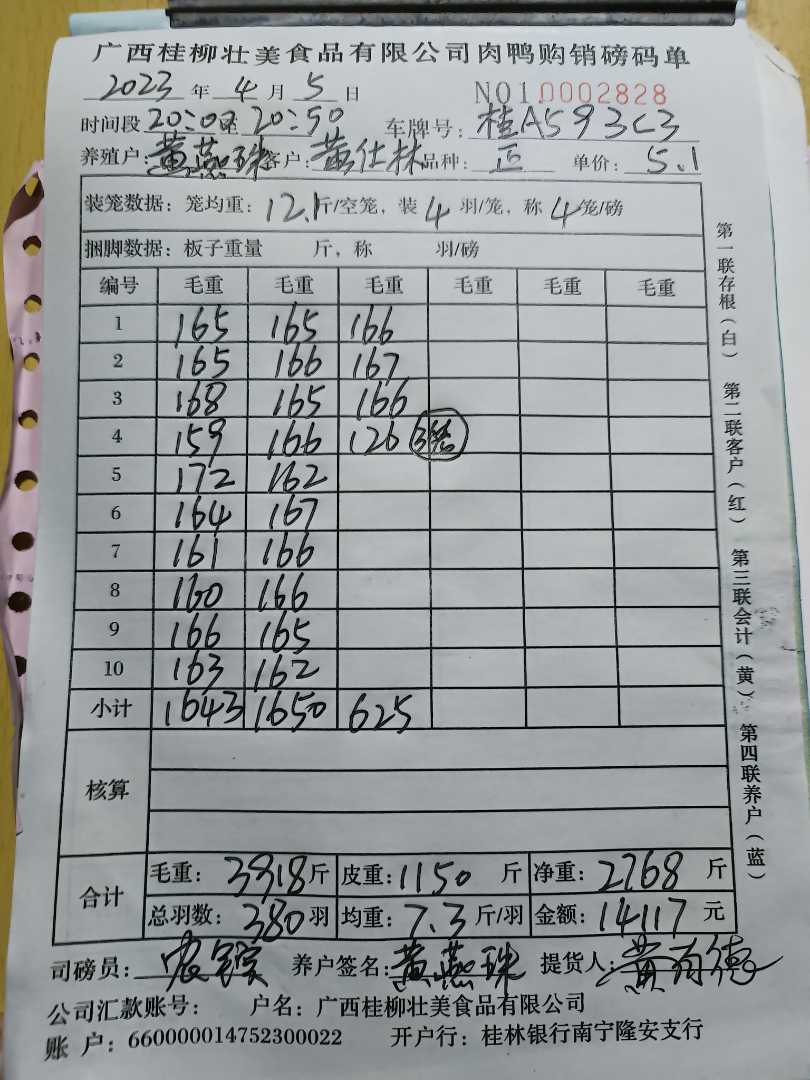 广西桂柳壮美食品有限公司肉鸭购销磅码单
2023 年 4 月 5 日 NO1.0002828
时间段 20:00至 20:50 车牌号: 桂A593C3
养殖户: 黄燕珠 客户: 黄仕林 品种: 正 单价: 5.1
装笼数据: 笼均重: 12.1斤/空笼, 装 4 羽/笼, 称 4笼/磅
捆脚数据: 板子重量 斤, 称 羽/磅
编号 毛重 毛重 毛重 毛重 毛重 毛重
1 165 165 166
2 165 166 167
3 168 165 166
4 159 166 126 3笼
5 172 162
6 164 167
7 161 166
8 160 166
9 166 165
10 163 162
小计 1643 1650 625
核算
合计
毛重: 3918斤 皮重: 1150 斤 净重: 2768 斤
总羽数: 380羽 均重: 7.3 斤/羽 金额: 14117 元
司磅员: 养户签名: 黄燕珠 提货人: 黄有德
公司汇款账号: 户名: 广西桂柳壮美食品有限公司
账 户: 660000014752300022 开户行: 桂林银行南宁隆安支行
第一联存根(白) 第二联客户(红) 第三联会计(黄) 第四联养户(蓝)